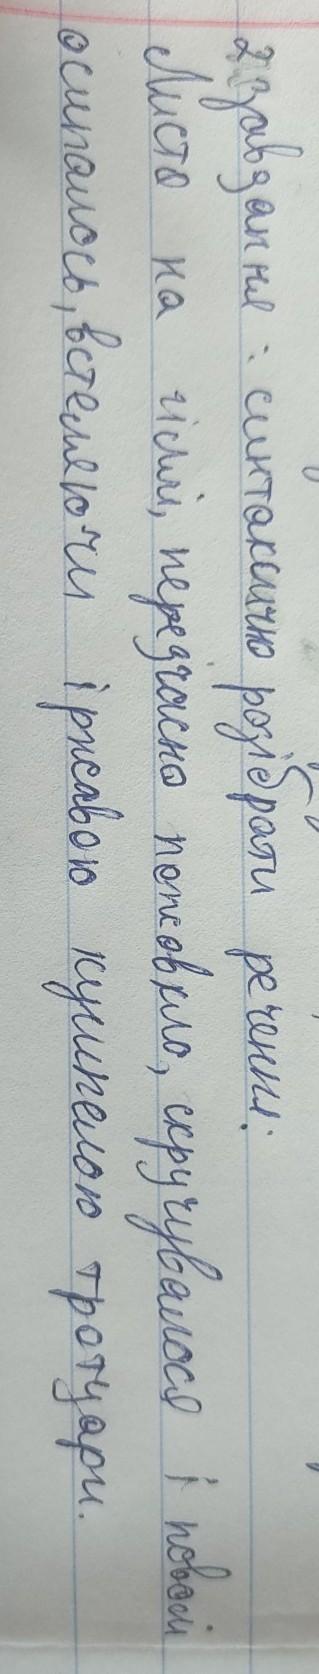 2 завдання: синтаксично розібрати речення.
Листя на гіллі, передчасно пожовкло, скручувалося і поволі
осипалось, встеляючи іржавою купіллю тротуари.